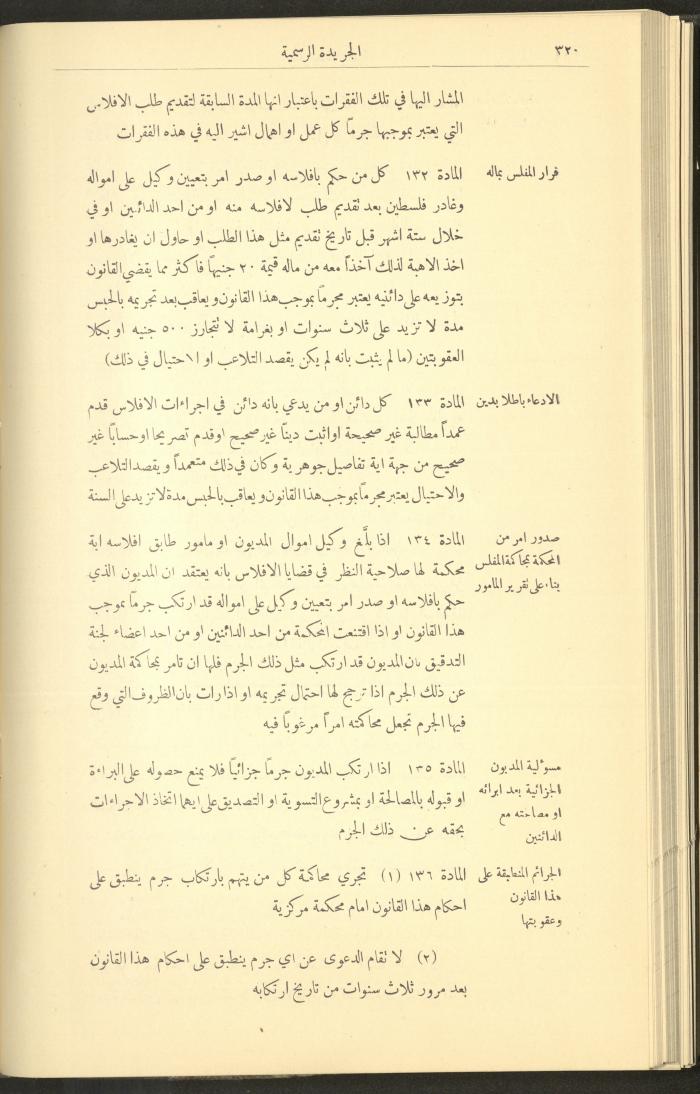 ٣٢٠
الجريدة الرسمية
المشار اليها في تلك الفقرات باعتبار انها المدة السابقة لتقديم طلب الافلاس
التي يعتبر بموجبها جرماً كل عمل او اهمال اشير اليه في هذه الفقرات
فرار المفلس بماله
المادة ١٣٢ كل من حكم بافلاسه او صدر امر بتعيين وكيل على امواله
وغادر فلسطين بعد تقديم طلب لافلاسه منه او من احد الدائنين او في
خلال ستة اشهر قبل تاريخ تقديم مثل هذا الطلب او حاول ان يغادرها او
اخذ الاهبة لذلك آخذاً معه من ماله قيمة ٢٠ جنيهاً فاكثر مما يقضي القانون
بتوزيعه على دائنيه يعتبر مجرماً بموجب هذا القانون ويعاقب بعد تجريمه بالحبس
مدة لا تزيد على ثلاث سنوات او بغرامة لا تتجارز ٥٠٠ جنيه او بكلا
العقوبتين (ما لم يثبت بانه لم يكن يقصد التلاعب او الاحتيال في ذلك)
الادعاء باطلا بدين
المادة ١٣٣ كل دائن او من يدعي بانه دائن في اجراءات الافلاس قدم
عمداً مطالبة غير صحيحة او اثبت ديناً غير صحيح او قدم تصريحا او حساباً غير
صحيح من جهة اية تفاصيل جوهرية وكان في ذلك متعمداً ويقصد التلاعب
والاحتيال يعتبر مجرماً بموجب هذا القانون ويعاقب بالحبس مدة لا تزيد على السنة
صدور امر من
المحكمة بمحاكمة المفلس
بناء على تقرير المامور
المادة ١٣٤ اذا بلَّغ وكيل اموال المديون او مامور طابق افلاسه اية
محكمة لها صلاحية النظر في قضايا الافلاس بانه يعتقد ان المديون الذي
حكم بافلاسه او صدر امر بتعيين وكيل على امواله قد ارتكب جرماً بموجب
هذا القانون او اذا اقتنعت المحكمة من احد الدائنين او من احد اعضاء لجنة
التدقيق بان المديون قد ارتكب مثل ذلك الجرم فلها ان تامر بمحاكمة المديون
عن ذلك الجرم اذا ترجح لها احتمال تجريمه او اذا رات بان الظروف التي وقع
فيها الجرم تجعل محاكمته امراً مرغوباً فيه
مسؤلية المديون
الجزائية بعد ابرائه
او مصالحته مع
الدائنين
المادة ١٣٥ اذا ارتكب المديون جرماً جزائياً فلا يمنع حصوله على البراءة
او قبوله بالمصالحة او بمشروع التسوية او التصديق على ايهما اتخاذ الاجراءات
بحقه عن ذلك الجرم
الجرائم المنطبقة على
هذا القانون
وعقوبتها
المادة ١٣٦ (١) تجري محاكمة كل من يتهم بارتكاب جرم ينطبق على
احكام هذا القانون امام محكمة مركزية
(٢) لا تقام الدعوى عن اي جرم ينطبق على احكام هذا القانون
بعد مرور ثلاث سنوات من تاريخ ارتكابه